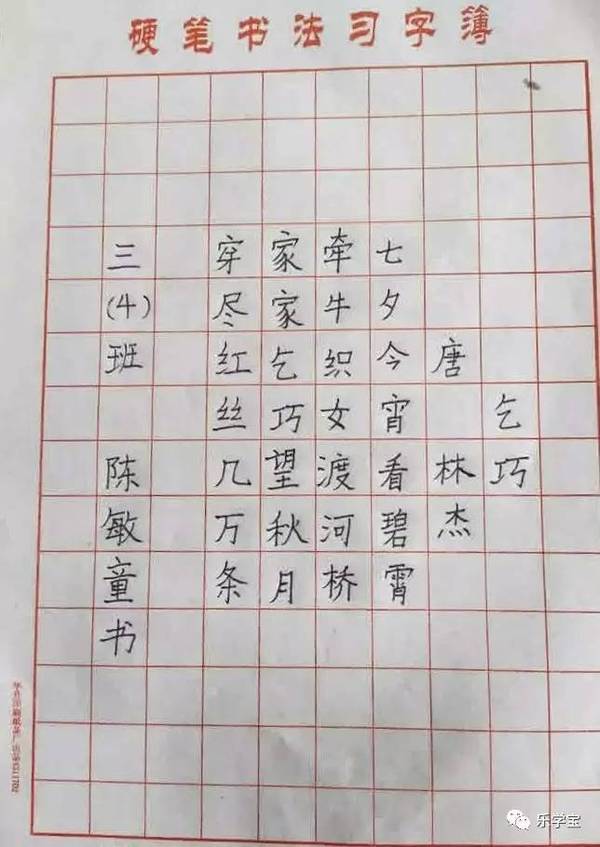 硬笔书法习字簿
乞巧
唐 林杰
七夕今宵看碧霄
牵牛织女渡河桥
家家乞巧望秋月
穿尽红丝几万条
三(4)班 陈敏童书
乐学宝